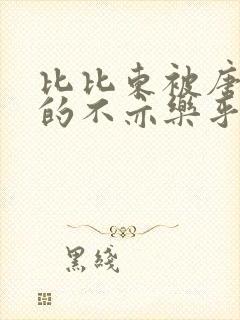 比比东被唐
的不亦樂乎
黑綫